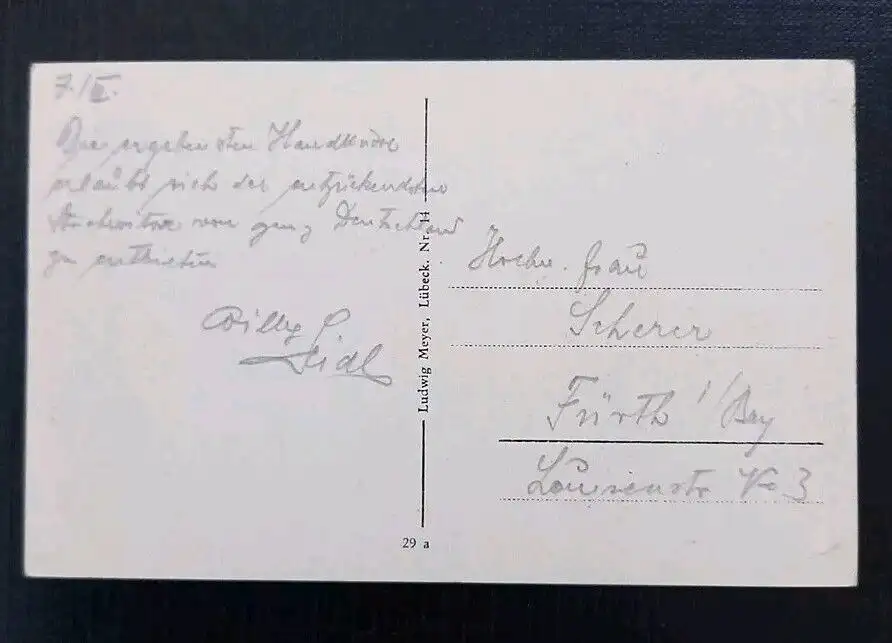 7./II.
Die ergebensten Handküsse
erlaubt sich der entzückendsten
von ganz Deutschland
zu entbieten
Willy
Seidl
Ludwig Meyer, Lübeck. Nr. 14
29 a
Hochw. Frau
Scherer
Fürth i/Bay
Louisenstr No 3